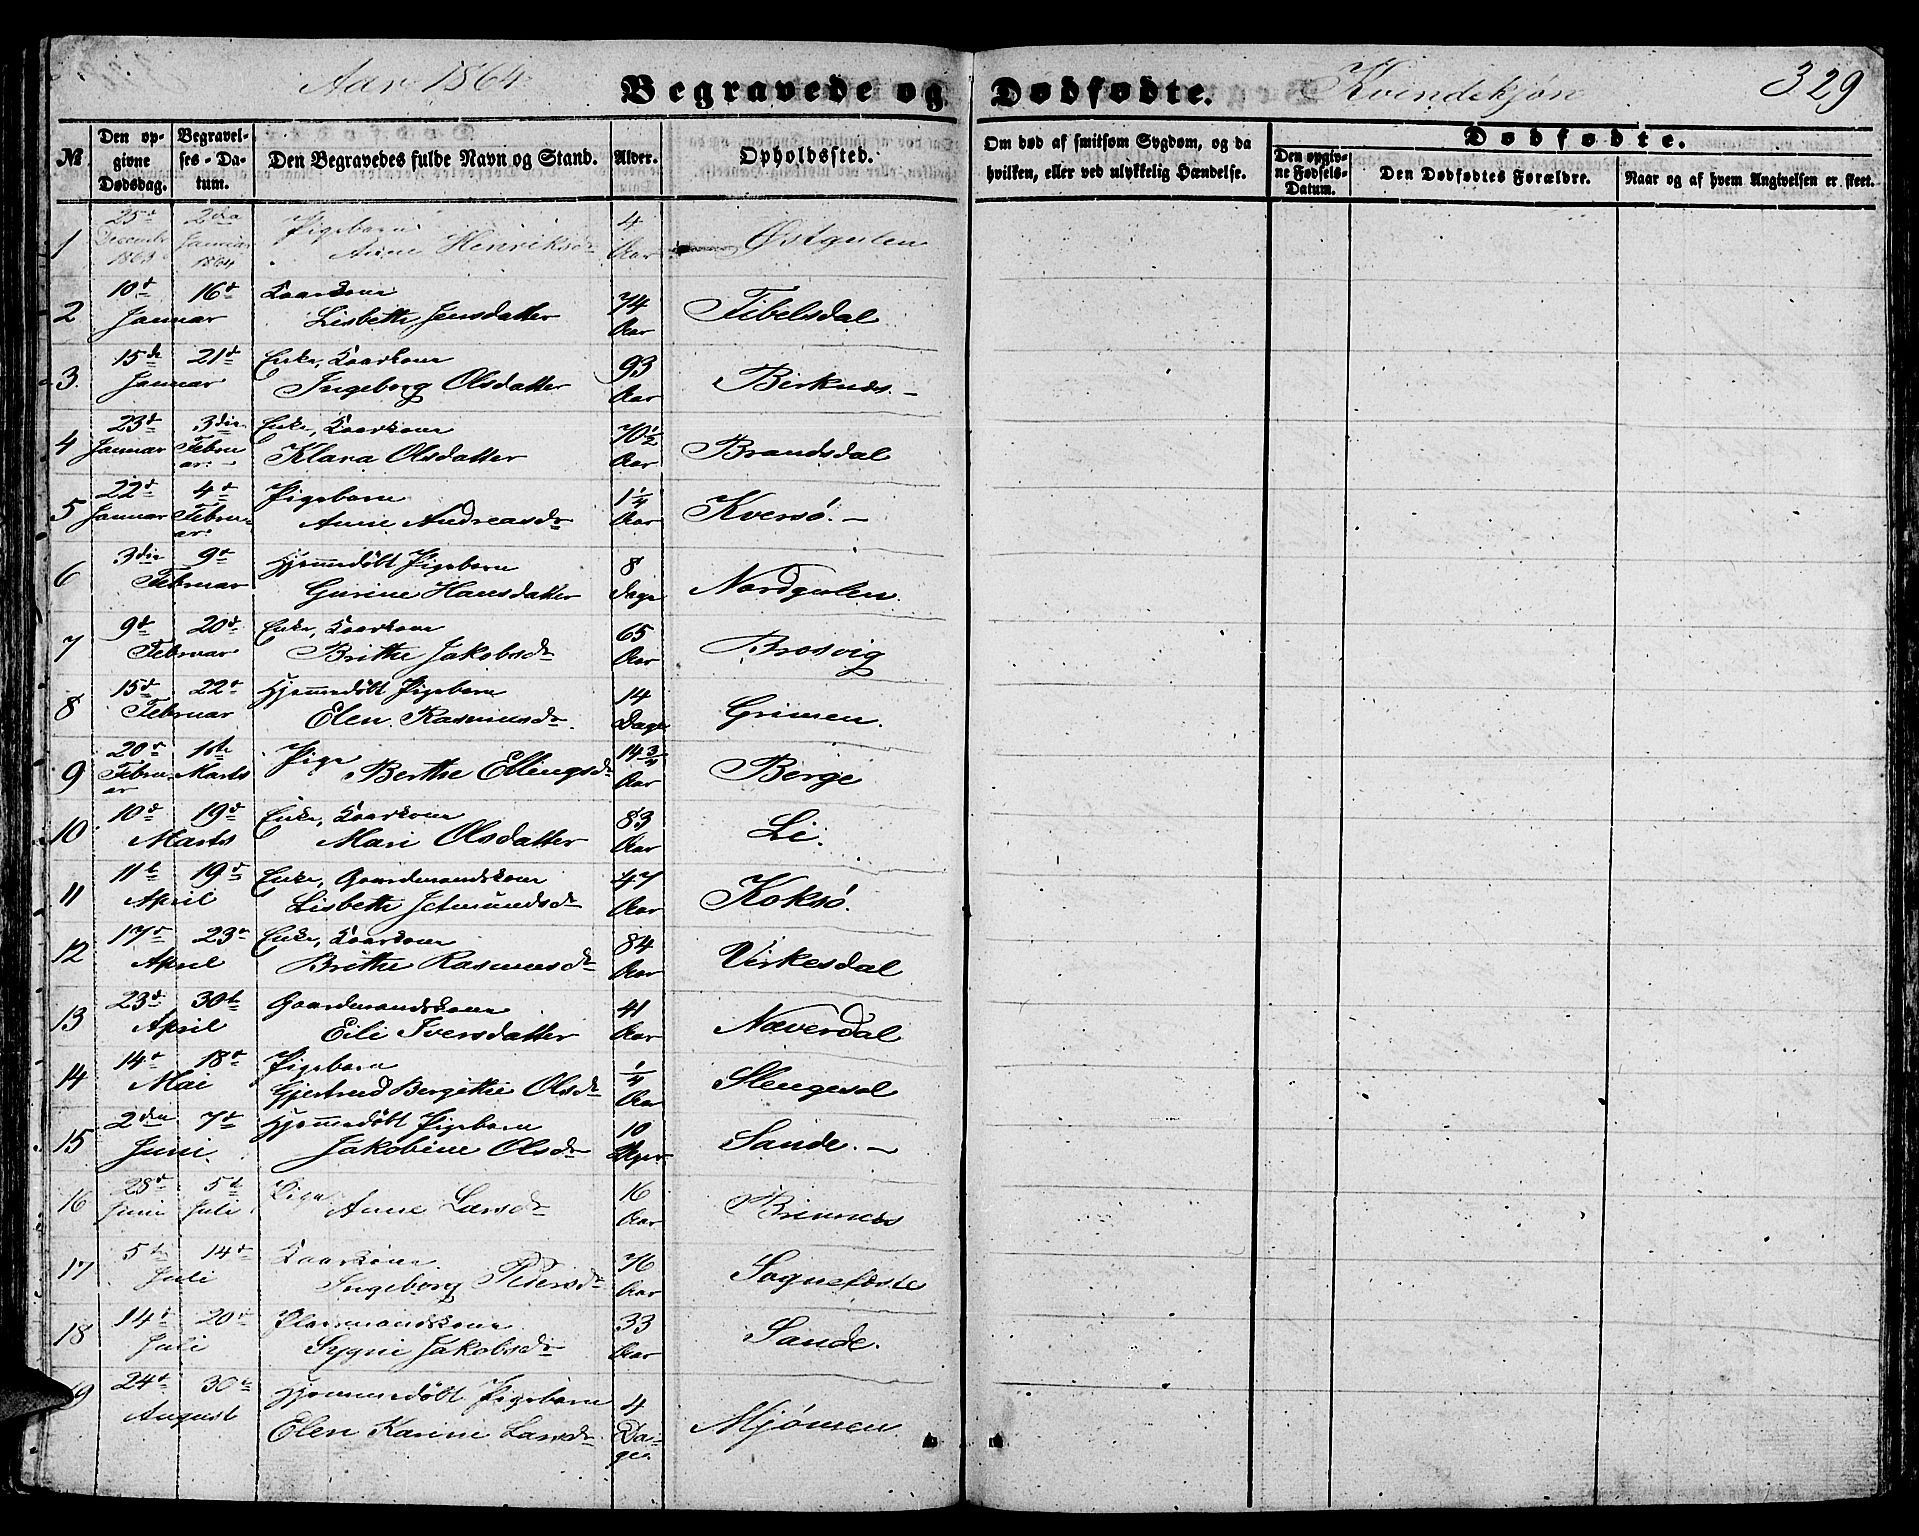 Aar 1864 Begravede og Dødfødte. Kvindekjøn 329
№ Den opgivne Dødsdag. Begravelses-Datum. Den Begravedes fulde Navn og Stand. Alder. Opholdssted. Om død af smitsom Sygdom, og da hvilken, eller ved ulykkelig Hændelse. Dødfødte. Den opgivne Fødsels-Datum. Den Dødfødtes Forældre. Naar og af hvem Angivelsen er skeet.
1 25de December 1863 2den Januar 1864 Pigebarn Anne Henriksdr 4 Aar Østgulen
2 10de 16de Januar Kaarkone Lisbeth Jensdatter 74 Aar Tibelsdal
3. 15de 21de Januar Enke, Kaarkone Ingeborg Olsdatter 93 Aar Birknes.-
4 23de Januar 3die Februar. Enke, Kaarkone Klara Olsdatter 70½ Aar Brandsdal
5 22de Januar 4de Februar. Pigebarn Anne Andreasdr 1¼ Aar Kversø.-
6 3die 9de Februar Hjemmedøbt Pigebarn Gurine Hansdatter 8 Dage Nordgulen.
7 9de 20de Februar Enke, Kaarkone Brithe Jakobsdr 65 Aar Brosvig
8 15de 22de Februar Hjemmedøbt Pigebarn Elen Rasmusdr. 14 Dage Grimen.
9 20de Februar 1ste Marts Pige Berthe Ellingsdr 14¾ Aar Berge
10 10de 19de Marts Enke, Kaarkone Mari Olsdatter 83 Aar Li.
11 11te 19de April Enke, Gaardmandskone Lisbeth Jetmundsdr 47 Aar Koksø.
12 17de 23de April Enke, Kaarkone Brithe Rasmusdr 84 Aar Virkesdal
13 23de 30te April Gaardmandskone Eili Iversdatter 41 Aar Næverdal
14 14de 18de Mai Pigebarn Gjertrud Bergithe Olsdr ¼ Aar Slengesol
15 2den 7de Juni. Hjemmedøbt Pigebarn Jakobine Olsdr 10 Sande.-
16 28de Juni 5te Juli Pige Anne Larsdr 16 Aar Brinnes
17 5te 14de Juli Kaarkone. Ingeborg Pedersdr 76 Aar Sognefæste
18 14de 20de Juli Pladsmandskone Sygni Jakobsdr 33 Aar Sande.
19 24de 30te August Hjemmedøbt Pigebarn Elen Karine Larsdr 4 Dage. Mjømen